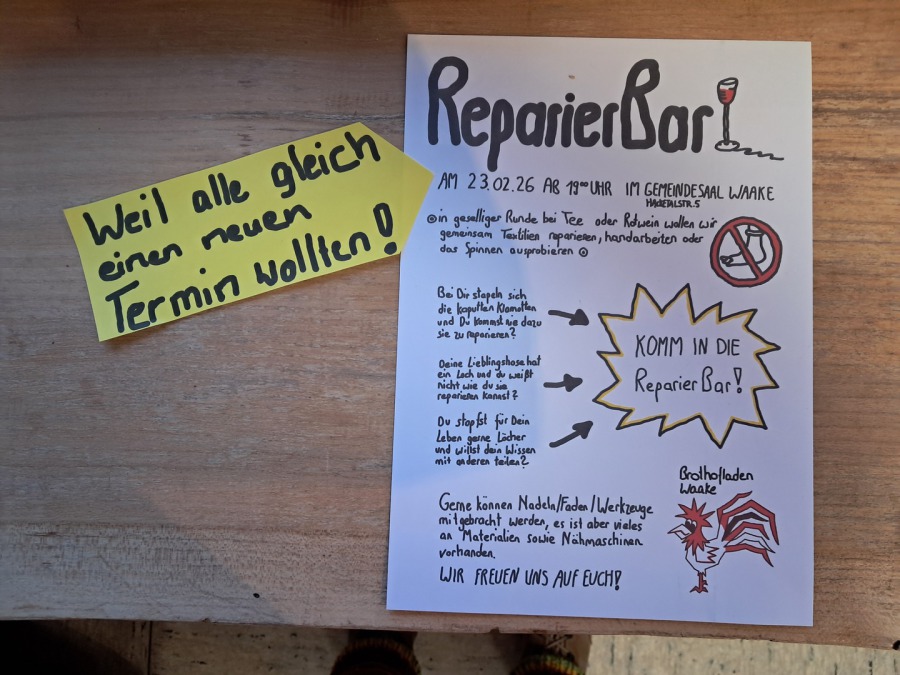 Weil alle gleich
einen neuen
Termin wollten!
ReparierBar
AM 23.02.26 AB 19°° UHR IM GEMEINDESAAL WAAKE
HACKETALSTR. 5
in geselliger Runde bei Tee oder Rotwein wollen wir
gemeinsam Textilien reparieren, handarbeiten oder
das Spinnen ausprobieren
Bei Dir stapeln sich
die kaputten Klamotten
und Du kommst nie dazu
sie zu reparieren?
Deine Lieblingshose hat
ein Loch und du weißt
nicht wie du sie
reparieren kannst?
Du stopfst für Dein
Leben gerne Löcher
und willst dein Wissen
mit anderen teilen?
KOMM IN DIE
ReparierBar!
Brothofladen
Waake
Gerne können Nadeln/Faden/Werkzeuge
mitgebracht werden, es ist aber vieles
an Materialien sowie Nähmaschinen
vorhanden.
WIR FREUEN UNS AUF EUCH!